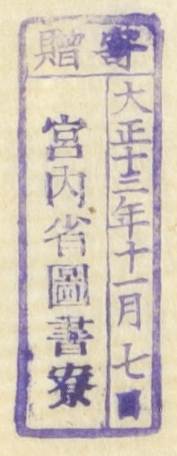 寄贈
大正十三年十一月七日
宮内省圖書寮